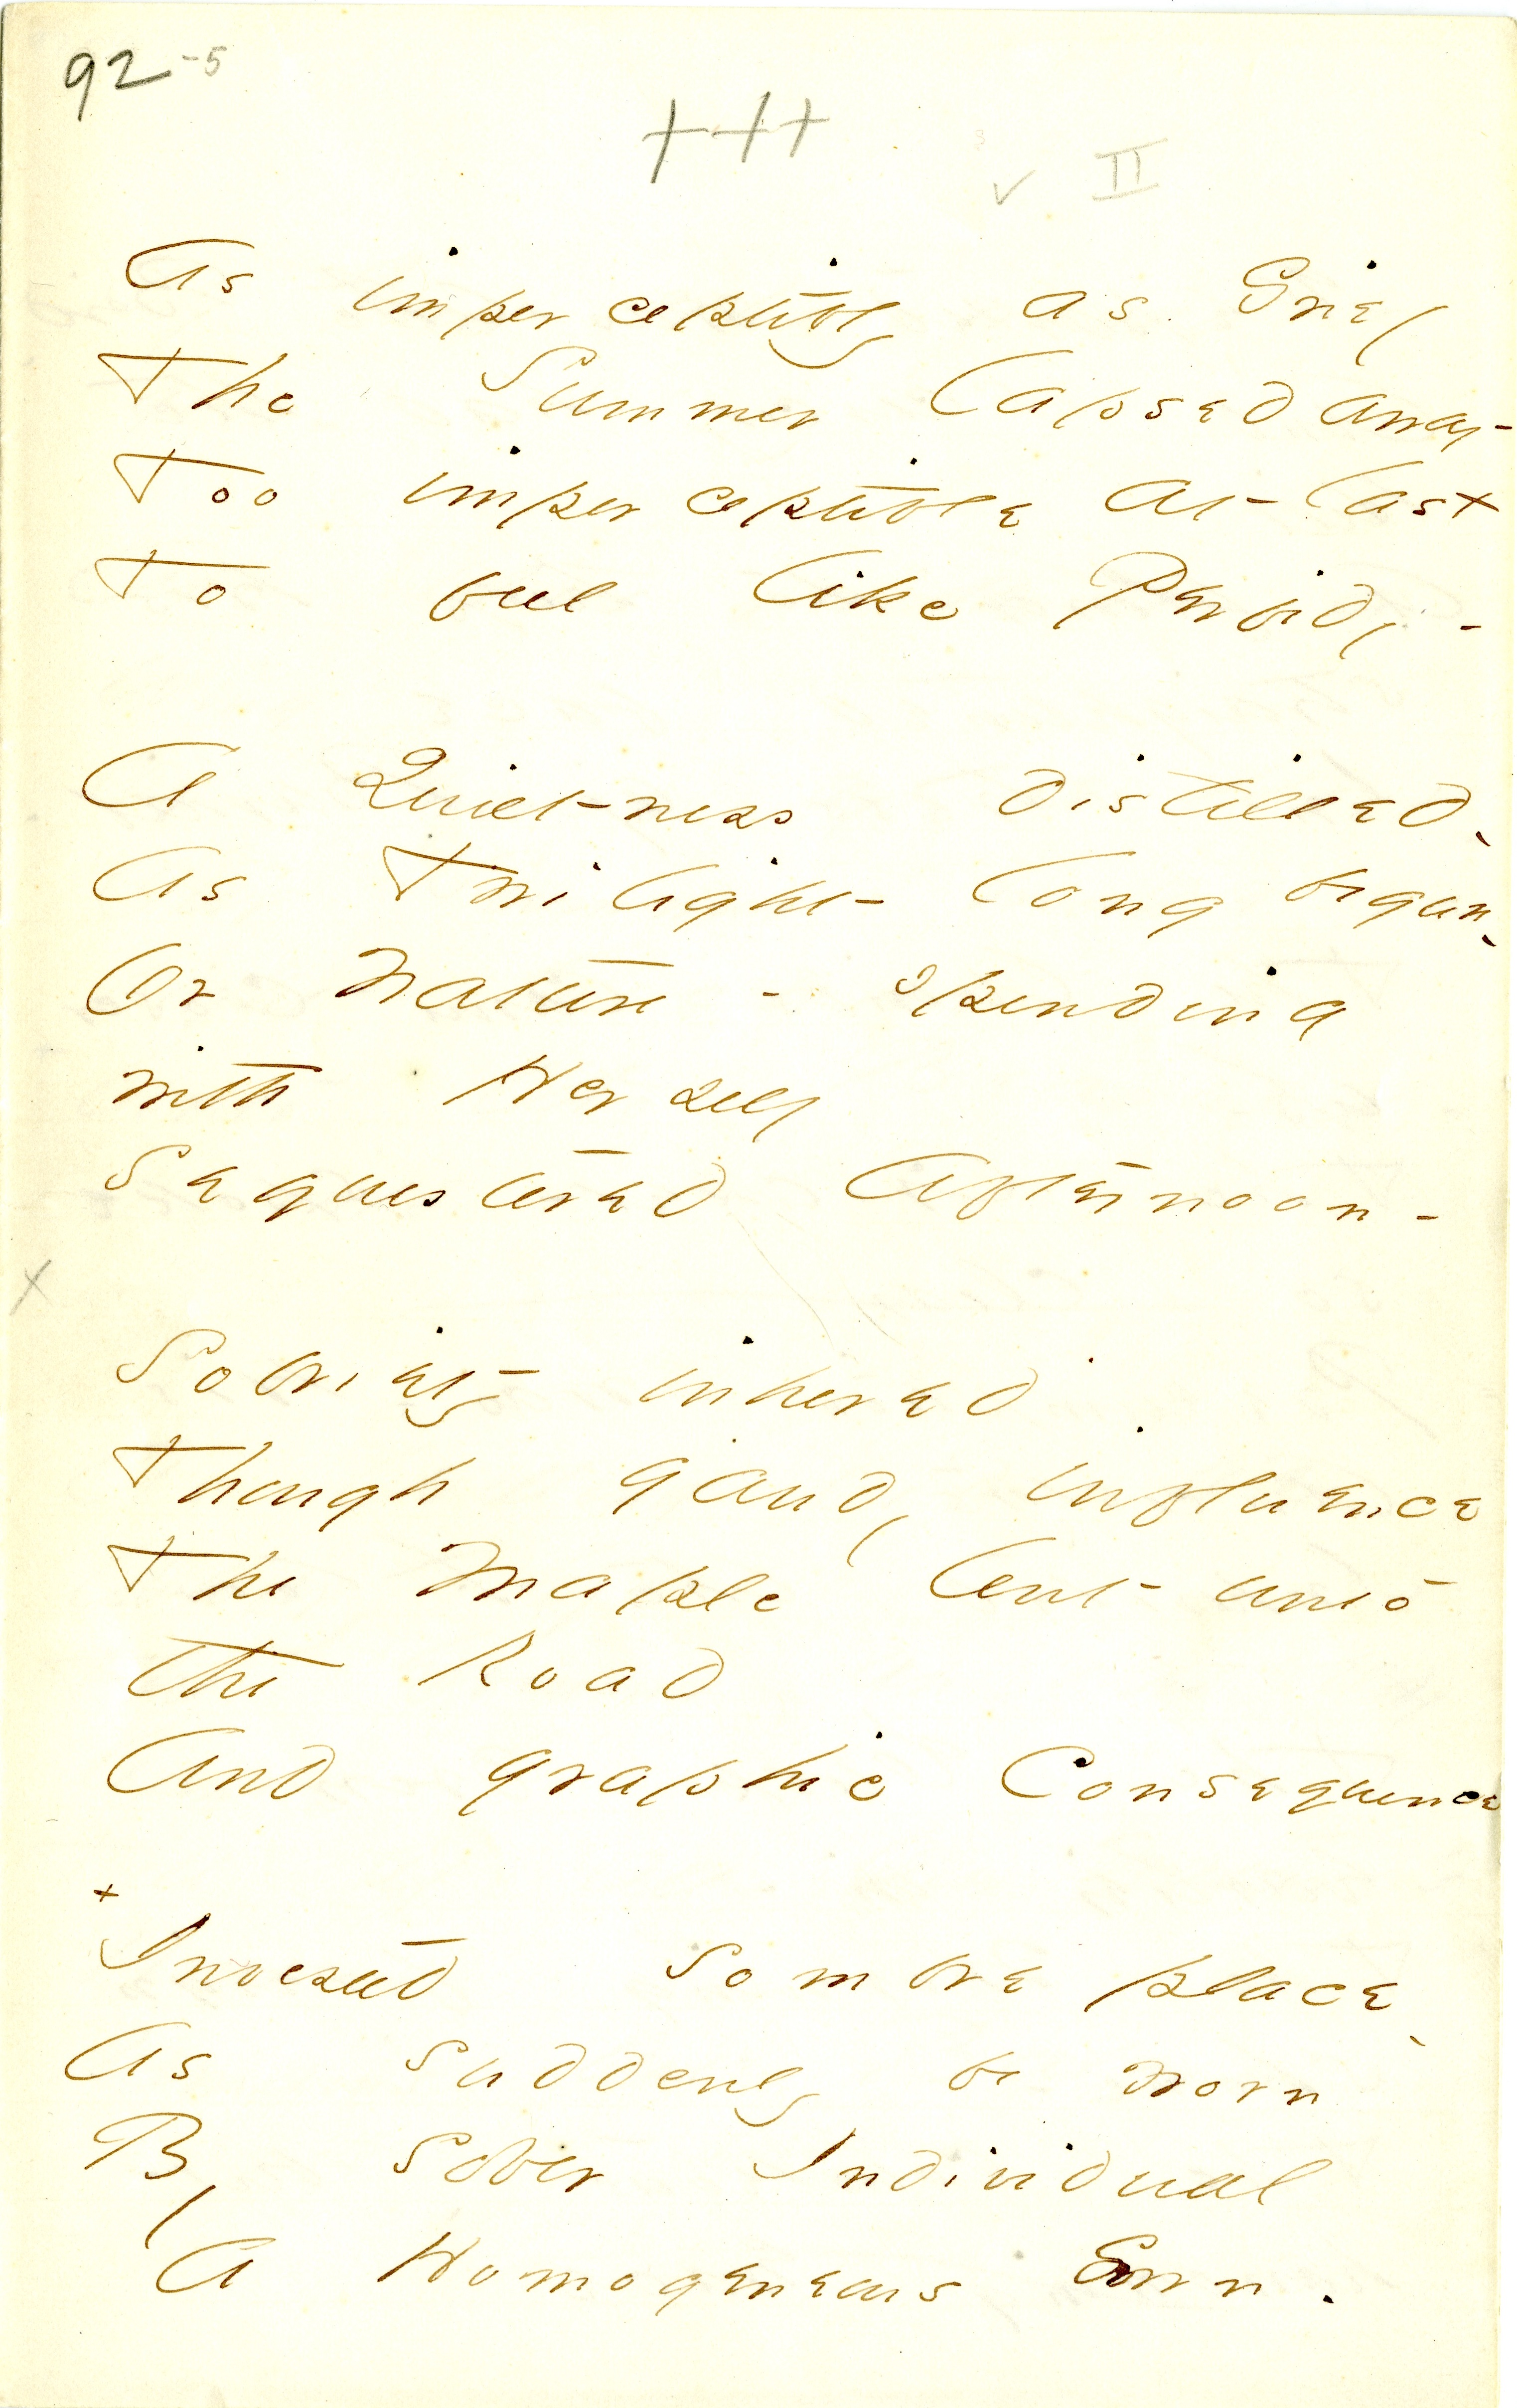 92-5
+++
✓ II
As imperceptibly as Grief
The Summer lapsed away-
Too imperceptible at last
To feel like Perfidy -
A Quietness distilled,
As Twilight long begun,
Or Nature - spending
with Herself
Sequestered Afternoon -
x
Sobriety inhered
Though gaudy influence
The Maple lent unto
the Road
And graphic Consequence
+
Invested sombre place,
As suddenly be worn
By sober Individual
A Homogeneous Gown.